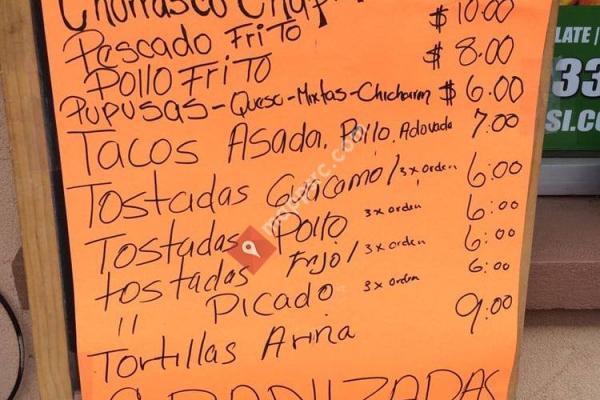 Churrasco Chap
Pescado Frito $ 10.00
Pollo Frito $ 8.00
Pupusas-Queso-Mixtas-Chicharron $ 6.00
Tacos Asada, Pollo, Adovada 7.00
Tostadas Guacamol 3x orden 6:00
Tostadas Pollo 3x orden 6:00
tostadas Frijol 3x orden 6:00
11 Picado 3x orden 6:00
Tortillas Arina 9:00
LATE |
33
SI.CO